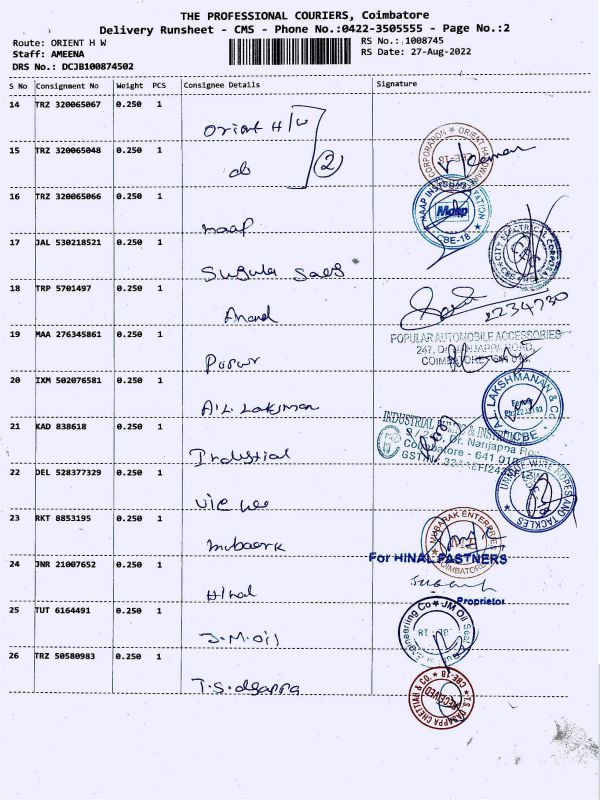 THE PROFESSIONAL COURIERS, Coimbatore
Delivery Runsheet - CMS - Phone No.:0422-3505555 - Page No.:2
Route: ORIENT H W RS No.: 1008745
Staff: AMEENA RS Date: 27-Aug-2022
DRS No.: DCJB100874502
S No Consignment No Weight PCS Consignee Details Signature
14 TRZ 320065067 0.250 1
Orient H/W
15 TRZ 320065048 0.250 1
do 2
CORPORATION ★ ORIENT HARDWARE
CBE-18
16 TRZ 320065066 0.250 1
naap
NAAP
Naap
CBE-18
17 JAL 530218521 0.250 1
CITY ELECTRICAL CORPORATION
18 TRP 5701497 0.250 1
Anand
2234730
19 MAA 276345861 0.250 1
POPULAR AUTOMOBILE ACCESSORIES
247, NANJAPPA ROAD,
20 IXM 502076581 0.250 1
A.L. Laksman
A.L. LAKSHMANAN & CO.
CBE
21 KAD 838618 0.250 1
Industrial
INDUSTRIAL
Dr. Nanjappa Road
Coimbatore - 641 018
GSTIN:
22 DEL 528377329 0.250 1
UNIQUE WIRE ROPES AND TACKLES
23 RKT 8853195 0.250 1
mubaark
MUBARAK ENTERPRISES
COIMBATORE
24 JNR 21007652 0.250 1
For HINAL PARTNERS
Hinal
Proprietor
25 TUT 6164491 0.250 1
J.M.Oil
Engineering Co ★ JM Oil Seal
26 TRZ 50580983 0.250 1
T.S. dasappa
T.S. DASAPPA CHETTIAR & CO. ★ CBE-18
RECEIVED